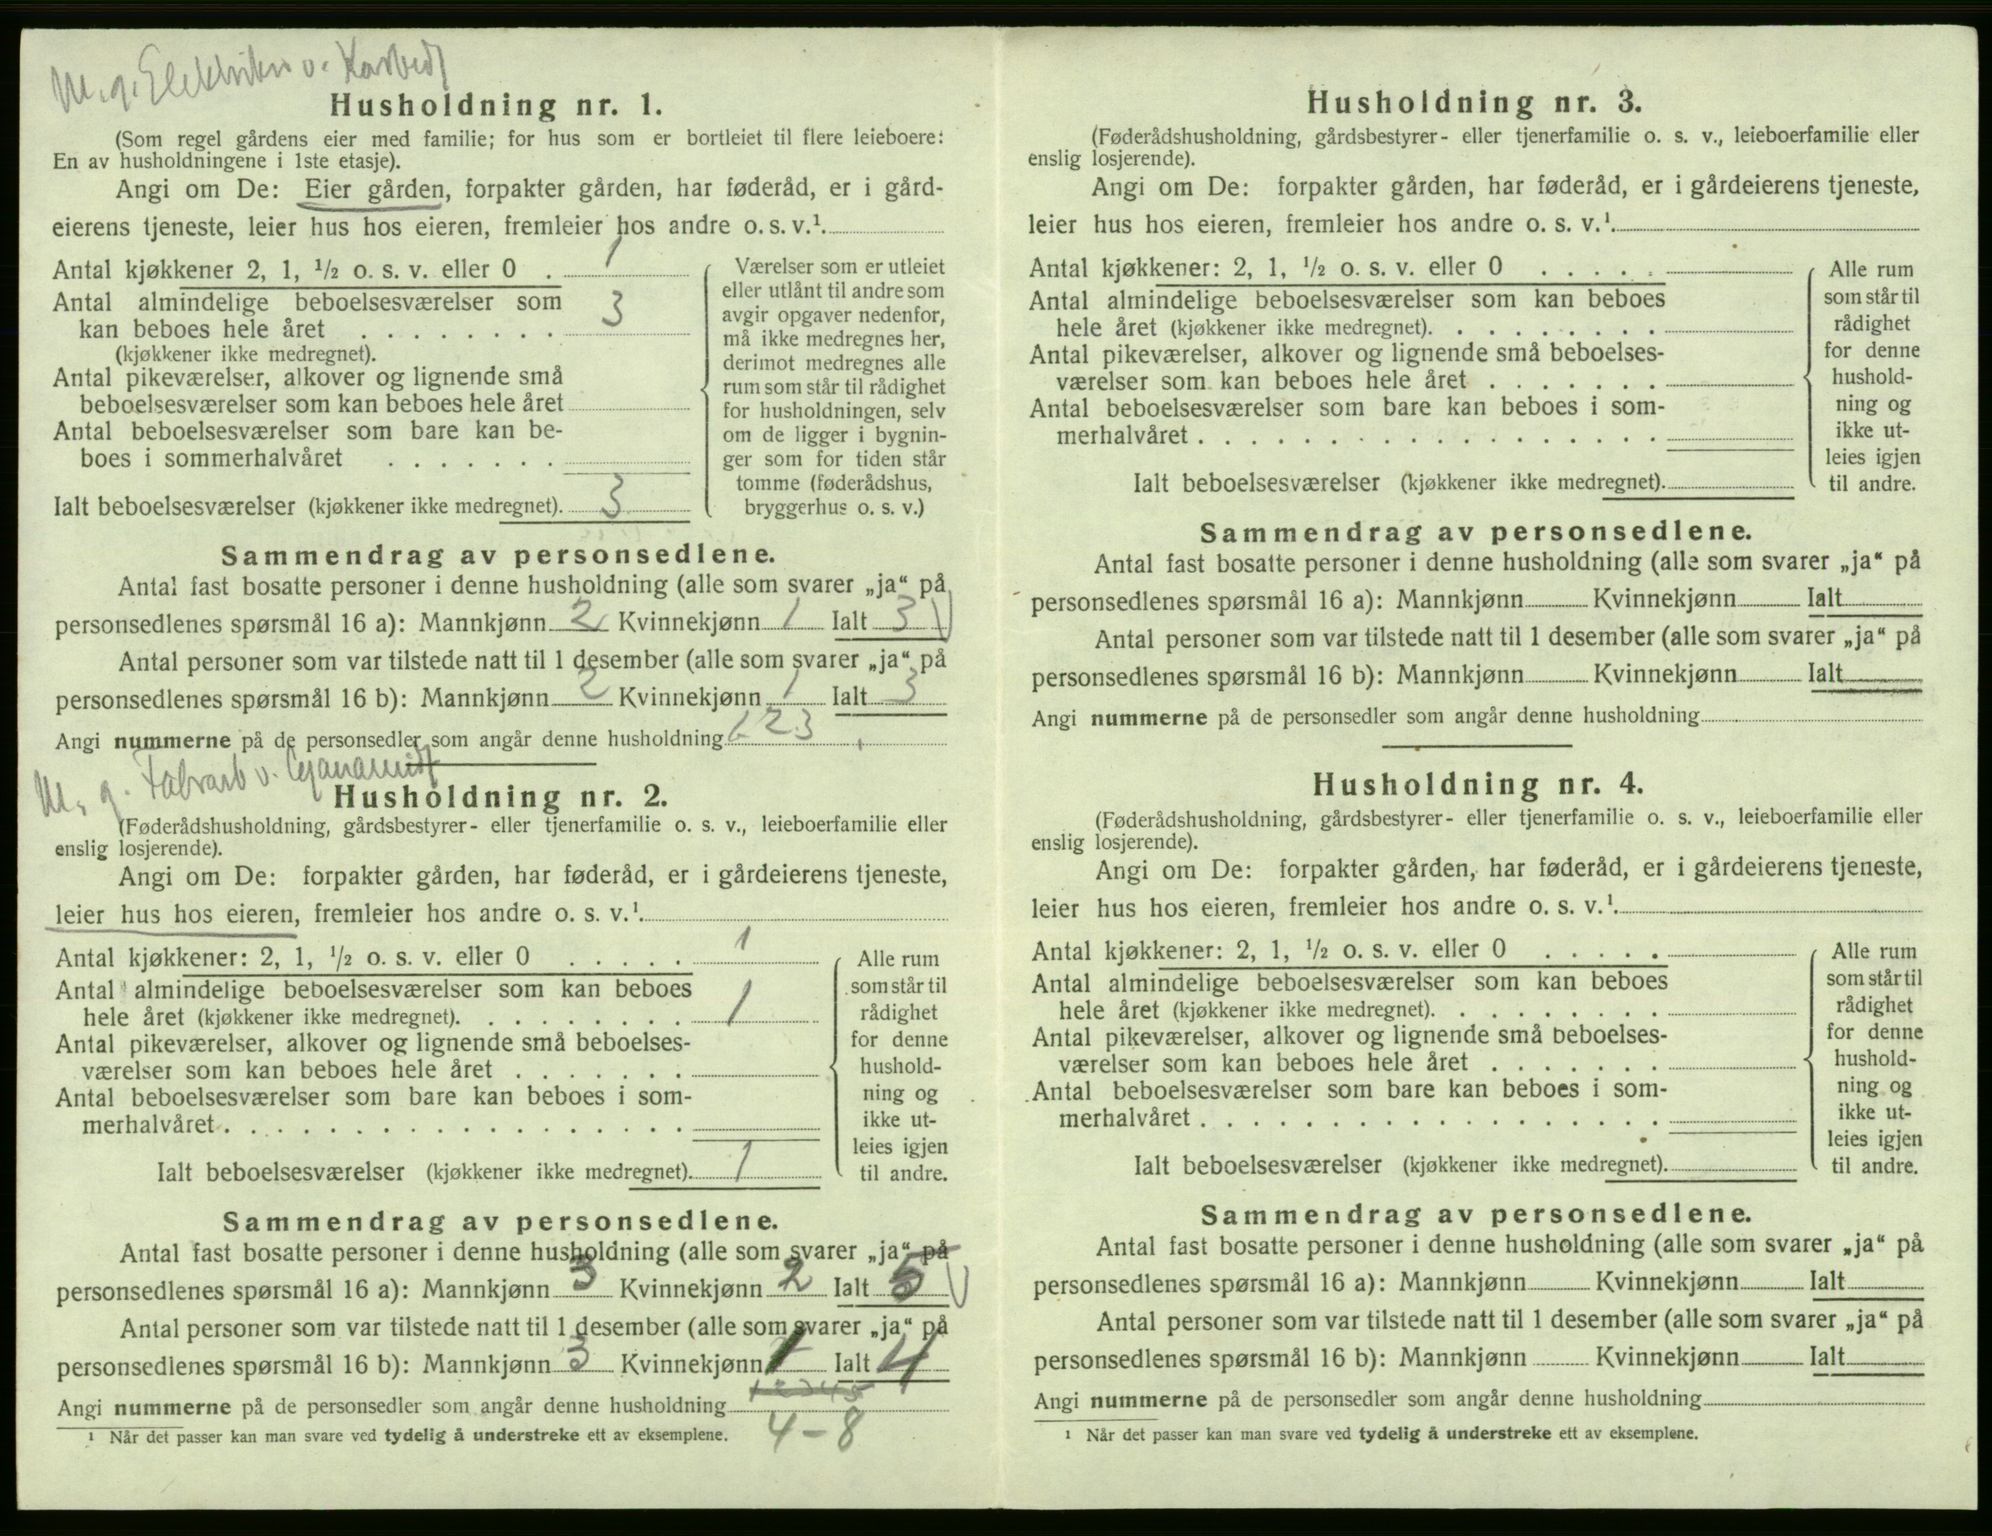 M. g. Elektriker v. Karbidf
Husholdning nr. 1.
(Som regel gårdens eier med familie; for hus som er bortleiet til flere leieboere:
En av husholdningene i 1ste etasje).
Angi om De: Eier gården, forpakter gården, har føderåd, er i gård-
eierens tjeneste, leier hus hos eieren, fremleier hos andre o. s. v.¹.
Antal kjøkkener 2, 1, ½ o. s. v. eller 0 . 1
Antal almindelige beboelsesværelser som
kan beboes hele året . . . . . . . . 3
(kjøkkener ikke medregnet).
Antal pikeværelser, alkover og lignende små
beboelsesværelser som kan beboes hele året
Antal beboelsesværelser som bare kan be-
boes i sommerhalvåret . . . . . . .
Ialt beboelsesværelser (kjøkkener ikke medregnet). 3
Værelser som er utleiet
eller utlånt til andre som
avgir opgaver nedenfor,
må ikke medregnes her,
derimot medregnes alle
rum som står til rådighet
for husholdningen, selv
om de ligger i bygnin-
ger som for tiden står
tomme (føderådshus,
bryggerhus o. s. v.)
Sammendrag av personsedlene.
Antal fast bosatte personer i denne husholdning (alle som svarer „ja“ på
personsedlenes spørsmål 16 a): Mannkjønn 2 Kvinnekjønn 1 Ialt 3
Antal personer som var tilstede natt til 1 desember (alle som svarer „ja“ på
personsedlenes spørsmål 16 b): Mannkjønn 2 Kvinnekjønn 1 Ialt 3
Angi nummerne på de personsedler som angår denne husholdning 1 2 3
M. g. Fabrarb v. Cyanamidf
Husholdning nr. 2.
(Føderådshusholdning, gårdsbestyrer- eller tjenerfamilie o. s. v., leieboerfamilie eller
enslig losjerende).
Angi om De: forpakter gården, har føderåd, er i gårdeierens tjeneste,
leier hus hos eieren, fremleier hos andre o. s. v.¹.
Antal kjøkkener: 2, 1, ½ o. s. v. eller 0 . . . . . 1
Antal almindelige beboelsesværelser som kan beboes
hele året (kjøkkener ikke medregnet). . . . . . . . . 1
Antal pikeværelser, alkover og lignende små beboelses-
værelser som kan beboes hele året . . . . . . .
Antal beboelsesværelser som bare kan beboes i som-
merhalvåret . . . . . . . . . . . . . . . . . .
Ialt beboelsesværelser (kjøkkener ikke medregnet). 1
Alle rum
som står til
rådighet
for denne
hushold-
ning og
ikke ut-
leies igjen
til andre.
Sammendrag av personsedlene.
Antal fast bosatte personer i denne husholdning (alle som svarer „ja“ på
personsedlenes spørsmål 16 a): Mannkjønn 3 Kvinnekjønn 2 Ialt 5
Antal personer som var tilstede natt til 1 desember (alle som svarer „ja“ på
personsedlenes spørsmål 16 b): Mannkjønn 3 Kvinnekjønn 1 Ialt 4
1 2 3 4 5
Angi nummerne på de personsedler som angår denne husholdning
4 – 8
¹ Når det passer kan man svare ved tydelig å understreke ett av eksemplene.
Husholdning nr. 3.
(Føderådshusholdning, gårdsbestyrer- eller tjenerfamilie o. s. v., leieboerfamilie eller
enslig losjerende).
Angi om De: forpakter gården, har føderåd, er i gårdeierens tjeneste,
leier hus hos eieren, fremleier hos andre o. s. v.¹.
Antal kjøkkener: 2, 1, ½ o. s. v. eller 0 . . . . .
Antal almindelige beboelsesværelser som kan beboes
hele året (kjøkkener ikke medregnet). . . . . . . . .
Antal pikeværelser, alkover og lignende små beboelses-
værelser som kan beboes hele året . . . . . . .
Antal beboelsesværelser som bare kan beboes i som-
merhalvåret . . . . . . . . . . . . . . . . . .
Ialt beboelsesværelser (kjøkkener ikke medregnet).
Alle rum
som står til
rådighet
for denne
hushold-
ning og
ikke ut-
leies igjen
til andre.
Sammendrag av personsedlene.
Antal fast bosatte personer i denne husholdning (alle som svarer „ja“ på
personsedlenes spørsmål 16 a): Mannkjønn Kvinnekjønn Ialt
Antal personer som var tilstede natt til 1 desember (alle som svarer „ja“ på
personsedlenes spørsmål 16 b): Mannkjønn Kvinnekjønn Ialt
Angi nummerne på de personsedler som angår denne husholdning
Husholdning nr. 4.
(Føderådshusholdning, gårdsbestyrer- eller tjenerfamilie o. s. v., leieboerfamilie eller
enslig losjerende).
Angi om De: forpakter gården, har føderåd, er i gårdeierens tjeneste,
leier hus hos eieren, fremleier hos andre o. s. v.¹.
Antal kjøkkener: 2, 1, ½ o. s. v. eller 0 . . . . .
Antal almindelige beboelsesværelser som kan beboes
hele året (kjøkkener ikke medregnet). . . . . . . . .
Antal pikeværelser, alkover og lignende små beboelses-
værelser som kan beboes hele året . . . . . . .
Antal beboelsesværelser som bare kan beboes i som-
merhalvåret . . . . . . . . . . . . . . . . . .
Ialt beboelsesværelser (kjøkkener ikke medregnet).
Alle rum
som står til
rådighet
for denne
hushold-
ning og
ikke ut-
leies igjen
til andre.
Sammendrag av personsedlene.
Antal fast bosatte personer i denne husholdning (alle som svarer „ja“ på
personsedlenes spørsmål 16 a): Mannkjønn Kvinnekjønn Ialt
Antal personer som var tilstede natt til 1 desember (alle som svarer „ja“ på
personsedlenes spørsmål 16 b): Mannkjønn Kvinnekjønn Ialt
Angi nummerne på de personsedler som angår denne husholdning
¹ Når det passer kan man svare ved tydelig å understreke ett av eksemplene.